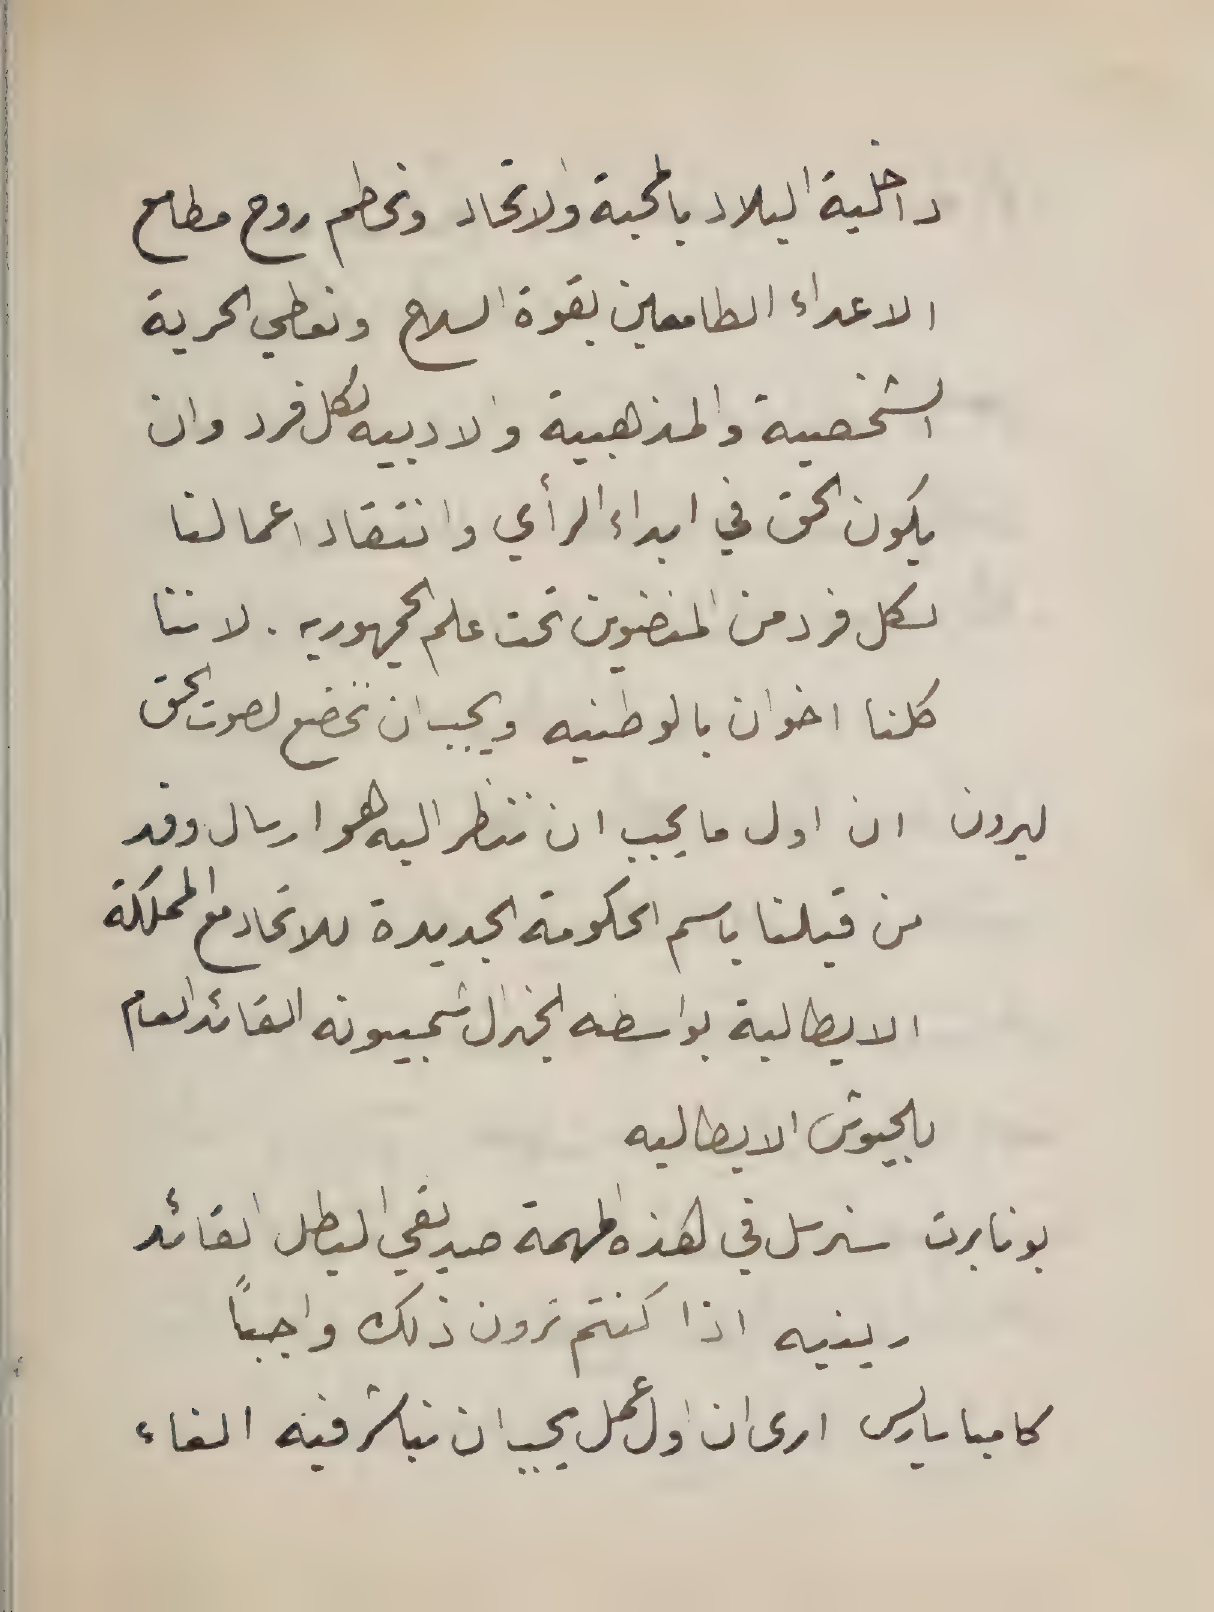 داخلية البلاد بالمحبة والاتحاد ونحطم روح مطامع
الاعداء الطامعين بقوة السلاح ونعطي الحرية
الشخصية والمذهبية والادبيه لكل فرد وان
يكون الحق في ابداء الرأي وانتقاد اعمالنا
لكل فرد من المنضوين تحت علم الجمهوريه . لاننا
كلنا اخوان بالوطنيه ويجب ان نخضع لصوت الحق
ليرون ان اول ما يجب ان ننظر اليه هو ارسال وفد
من قبلنا باسم الحكومة الجديدة للاتحاد مع المملكة
الايطالية بواسطه الجنرال شمبيونه القائد العام
بالجيوش الايطاليه
بونابرت سنرسل في هذه المهمة صديقي البطل القائد
رينيه اذا كنتم ترون ذلك واجباً
كامباسارس ارى ان اول عمل يجب ان نباشر فيه الغاء